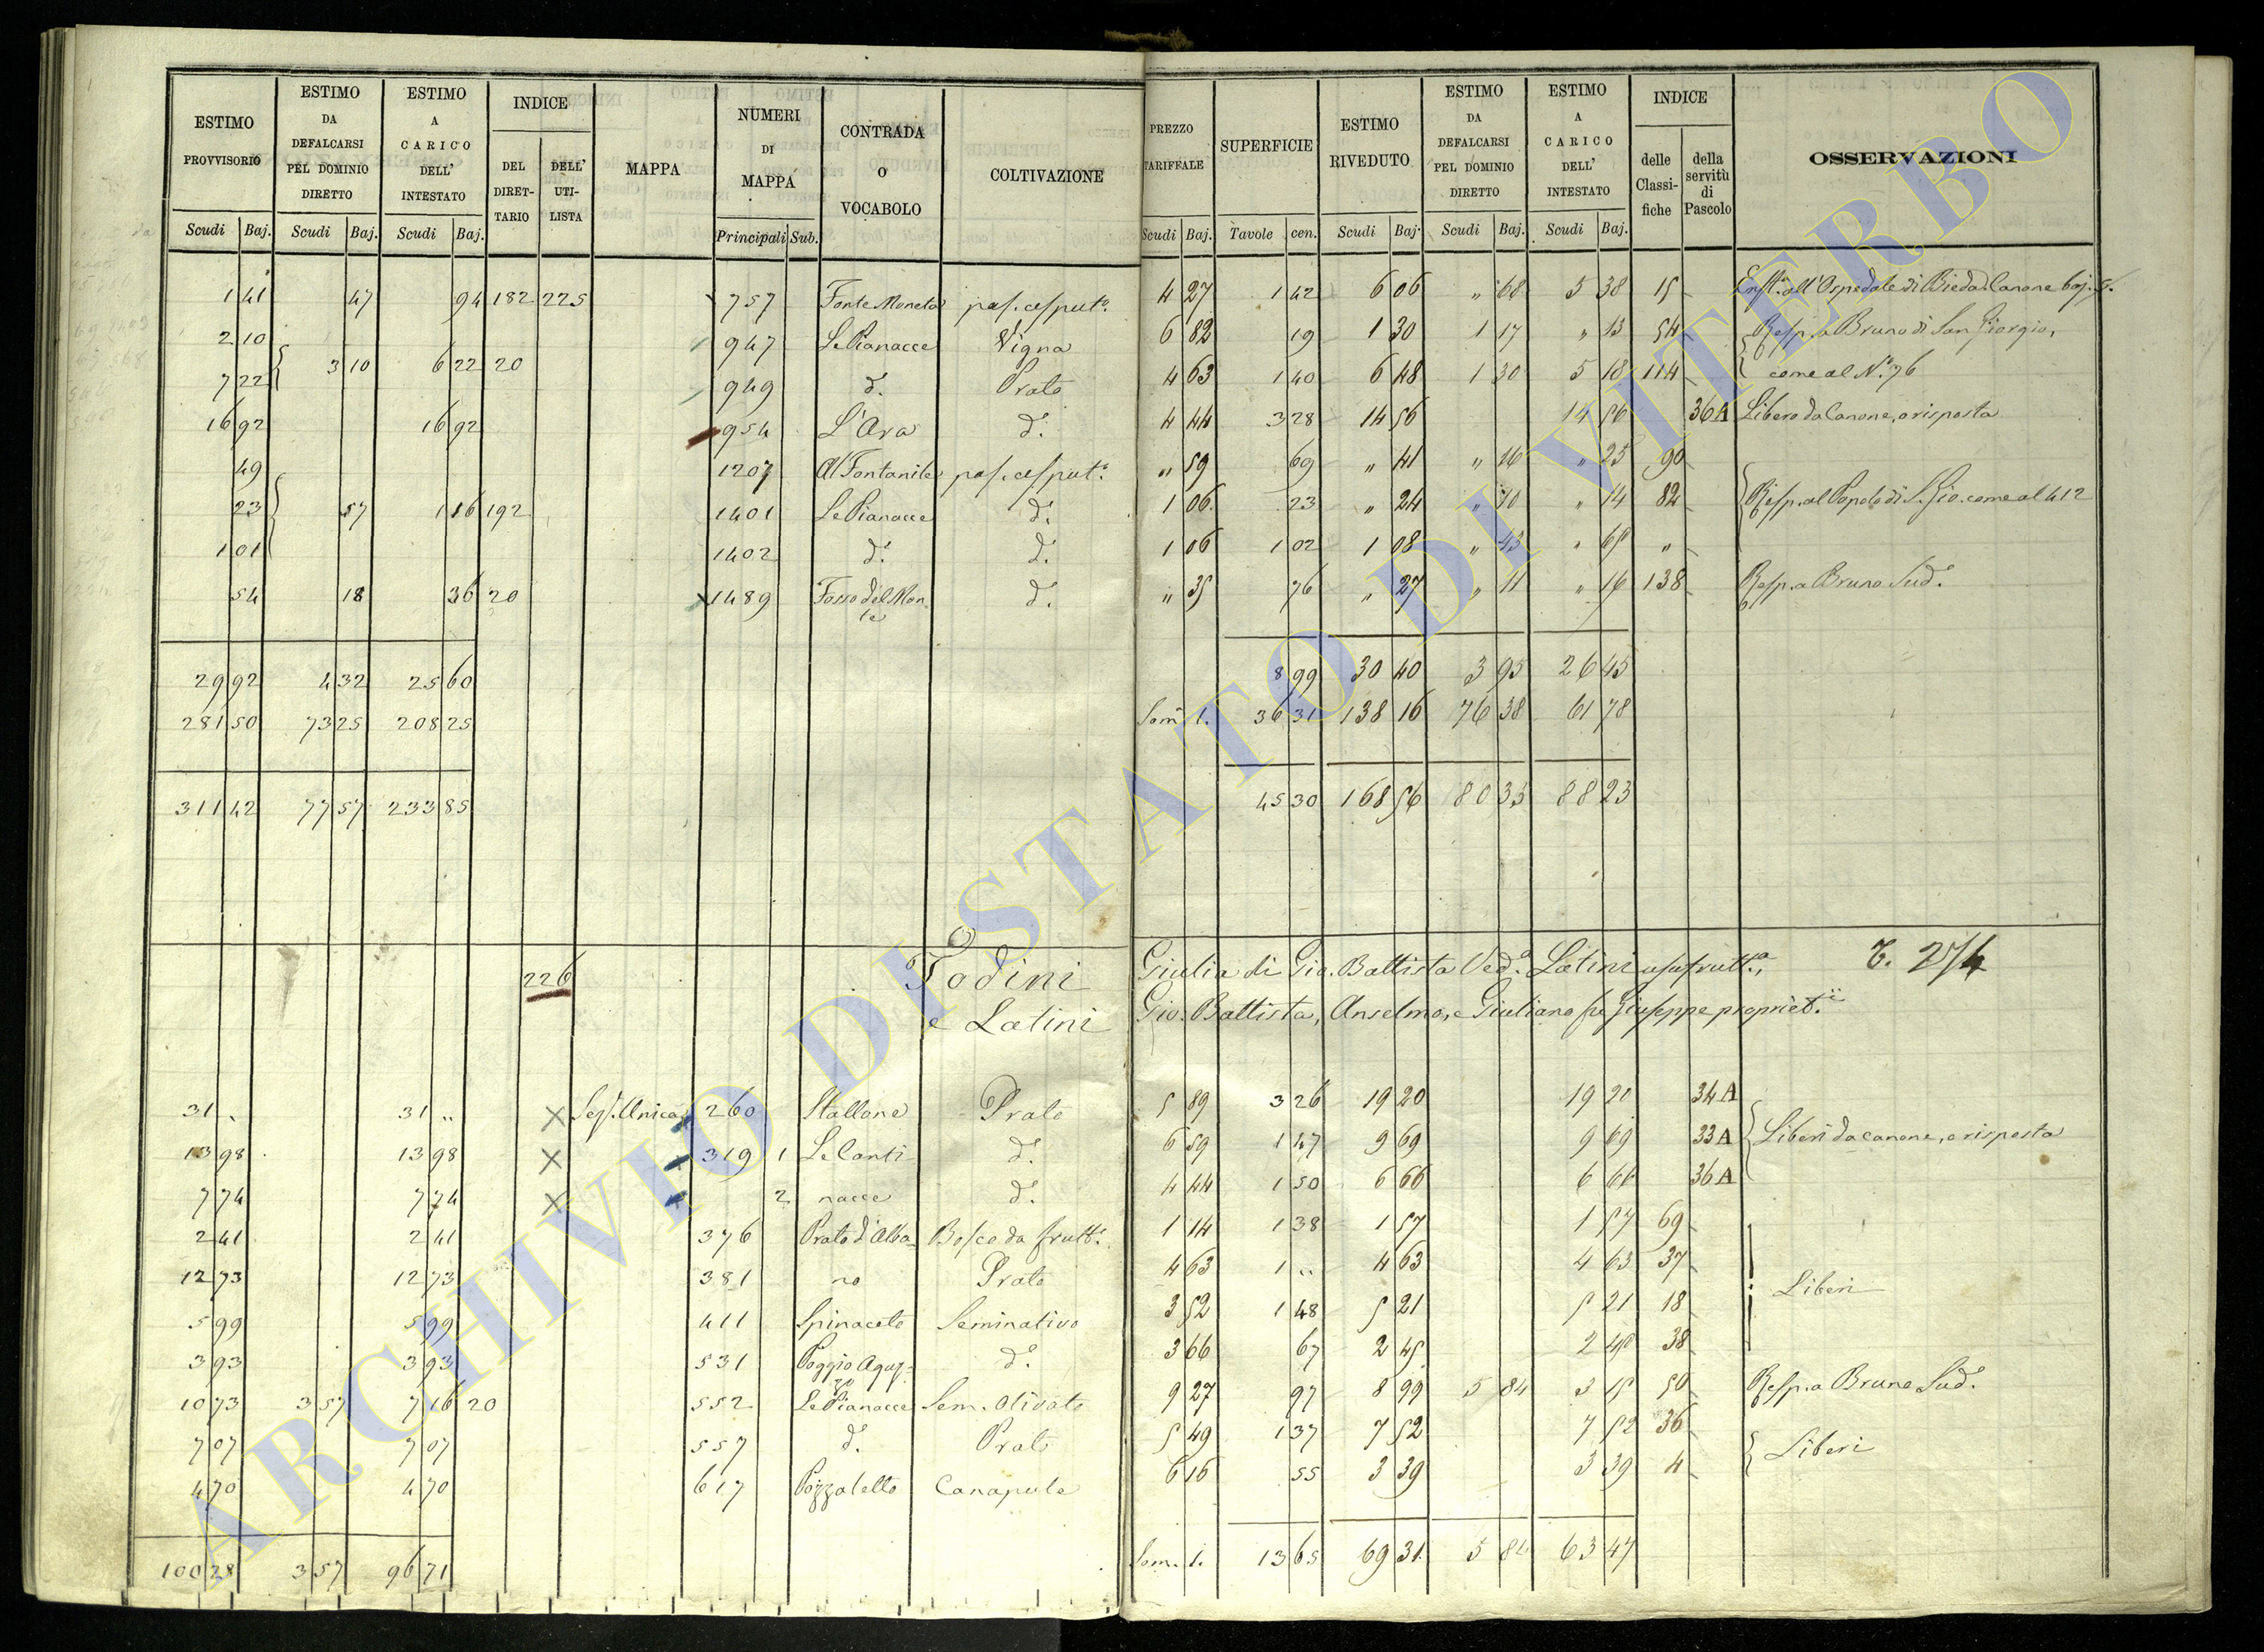 ESTIMO PROVVISORIO | ESTIMO DA DEFALCARSI PEL DOMINIO DIRETTO | ESTIMO A CARICO DELL' INTESTATO | INDICE DEL DIRETTARIO | DELL' UTILISTA | MAPPA | NUMERI DI MAPPA | CONTRADA O VOCABOLO | COLTIVAZIONE | PREZZO TARIFFALE | SUPERFICIE | ESTIMO RIVEDUTO | ESTIMO DA DEFALCARSI PEL DOMINIO DIRETTO | ESTIMO A CARICO DELL' INTESTATO | INDICE delle Classifiche | della servitù di Pascolo | OSSERVAZIONI
Scudi Baj. | Scudi Baj. | Scudi Baj. | Principali Sub. | Scudi Baj. | Tavole cen. | Scudi Baj. | Scudi Baj. | Scudi Baj.
1 41 | 47 | 94 | 182 | 225 | 757 | Fonte Moneta | pas. cesput.o | 4 27 | 1 42 | 6 06 | " 68 | 5 38 | 15 | all'Ospedale di Bieda Canone baj.
2 10 | 947 | Le Pianacce | Vigna | 6 82 | 19 | 1 30 | 1 17 | " 13 | 54 | Resp. a Bruno di San Giorgio,
3 10 | 6 22 | 20
7 22 | 949 | d.o | Prato | 4 63 | 1 40 | 6 48 | 1 30 | 5 18 | 114 | come al N.o 76
16 92 | 16 92 | 954 | L'Ara | d.o | 4 44 | 3 28 | 14 56 | 14 56 | 36 A | Libero da Canone, o risposta
49 | 1207 | Al Fontanile | pas. cesput.o | " 59 | 69 | " 41 | " 16 | " 25 | 90
23 | 57 | 1 16 | 192 | 1401 | Le Pianacce | d.o | 1 06 | 23 | " 24 | " 10 | " 14 | 82 | Resp. al Popolo di S. Gio. come al 412
1 01 | 1402 | d.o | d.o | 1 06 | 1 02 | 1 08 | " 43 | " 65 | "
54 | 18 | 36 | 20 | 1489 | Fosso del Monte | d.o | " 35 | 76 | " 27 | " 11 | " 16 | 138 | Resp. a Bruno Sud.o
29 92 | 4 32 | 25 60 | 8 99 | 30 40 | 3 95 | 26 45
281 50 | 73 25 | 208 25 | Som. 1. | 36 31 | 138 16 | 76 38 | 61 78
311 42 | 77 57 | 233 85 | 45 30 | 168 56 | 80 33 | 88 23
226 | Todini | Giulia di Gio. Battista Ved.a Latini usufrutt.a,
e Latini | Gio. Battista, Anselmo, e Giuliano fu Giuseppe propriet.ii
31 " | 31 " | Sez. Unica | 260 | Stallone | Prato | 5 89 | 3 26 | 19 20 | 19 20 | 34 A
13 98 | 13 98 | 319 1 | Le Canti | d.o | 6 59 | 1 47 | 9 69 | 9 69 | 33 A | Liberi da canone, e risposta
7 74 | 7 74 | 2 | nacce | d.o | 4 44 | 1 50 | 6 66 | 6 66 | 36 A
2 41 | 2 41 | 376 | Prato d'Alba- | Bosco da frutt.o | 1 14 | 1 38 | 1 57 | 1 57 | 69
12 73 | 12 73 | 381 | no | Prato | 4 63 | 1 " | 4 63 | 4 63 | 37 | Liberi
5 99 | 5 99 | 411 | Spinaceto | Seminativo | 3 52 | 1 48 | 5 21 | 5 21 | 18
3 93 | 3 93 | 531 | Poggio Aguzzo | d.o | 3 66 | 67 | 2 45 | 2 45 | 38
10 73 | 3 57 | 7 16 | 20 | 552 | Le Pianacce | Sem. Olivato | 9 27 | 97 | 8 99 | 5 84 | 3 15 | 50 | Resp. a Bruno Sud.o
7 07 | 7 07 | 557 | d.o | Prato | 5 49 | 1 37 | 7 52 | 7 52 | 36 | Liberi
4 70 | 4 70 | 617 | Pozzatello | Canapule | 6 16 | 55 | 3 39 | 3 39 | 4
100 28 | 3 57 | 96 71 | Som. 1. | 13 65 | 69 31 | 5 84 | 63 47
ARCHIVIO DI STATO DI VITERBO